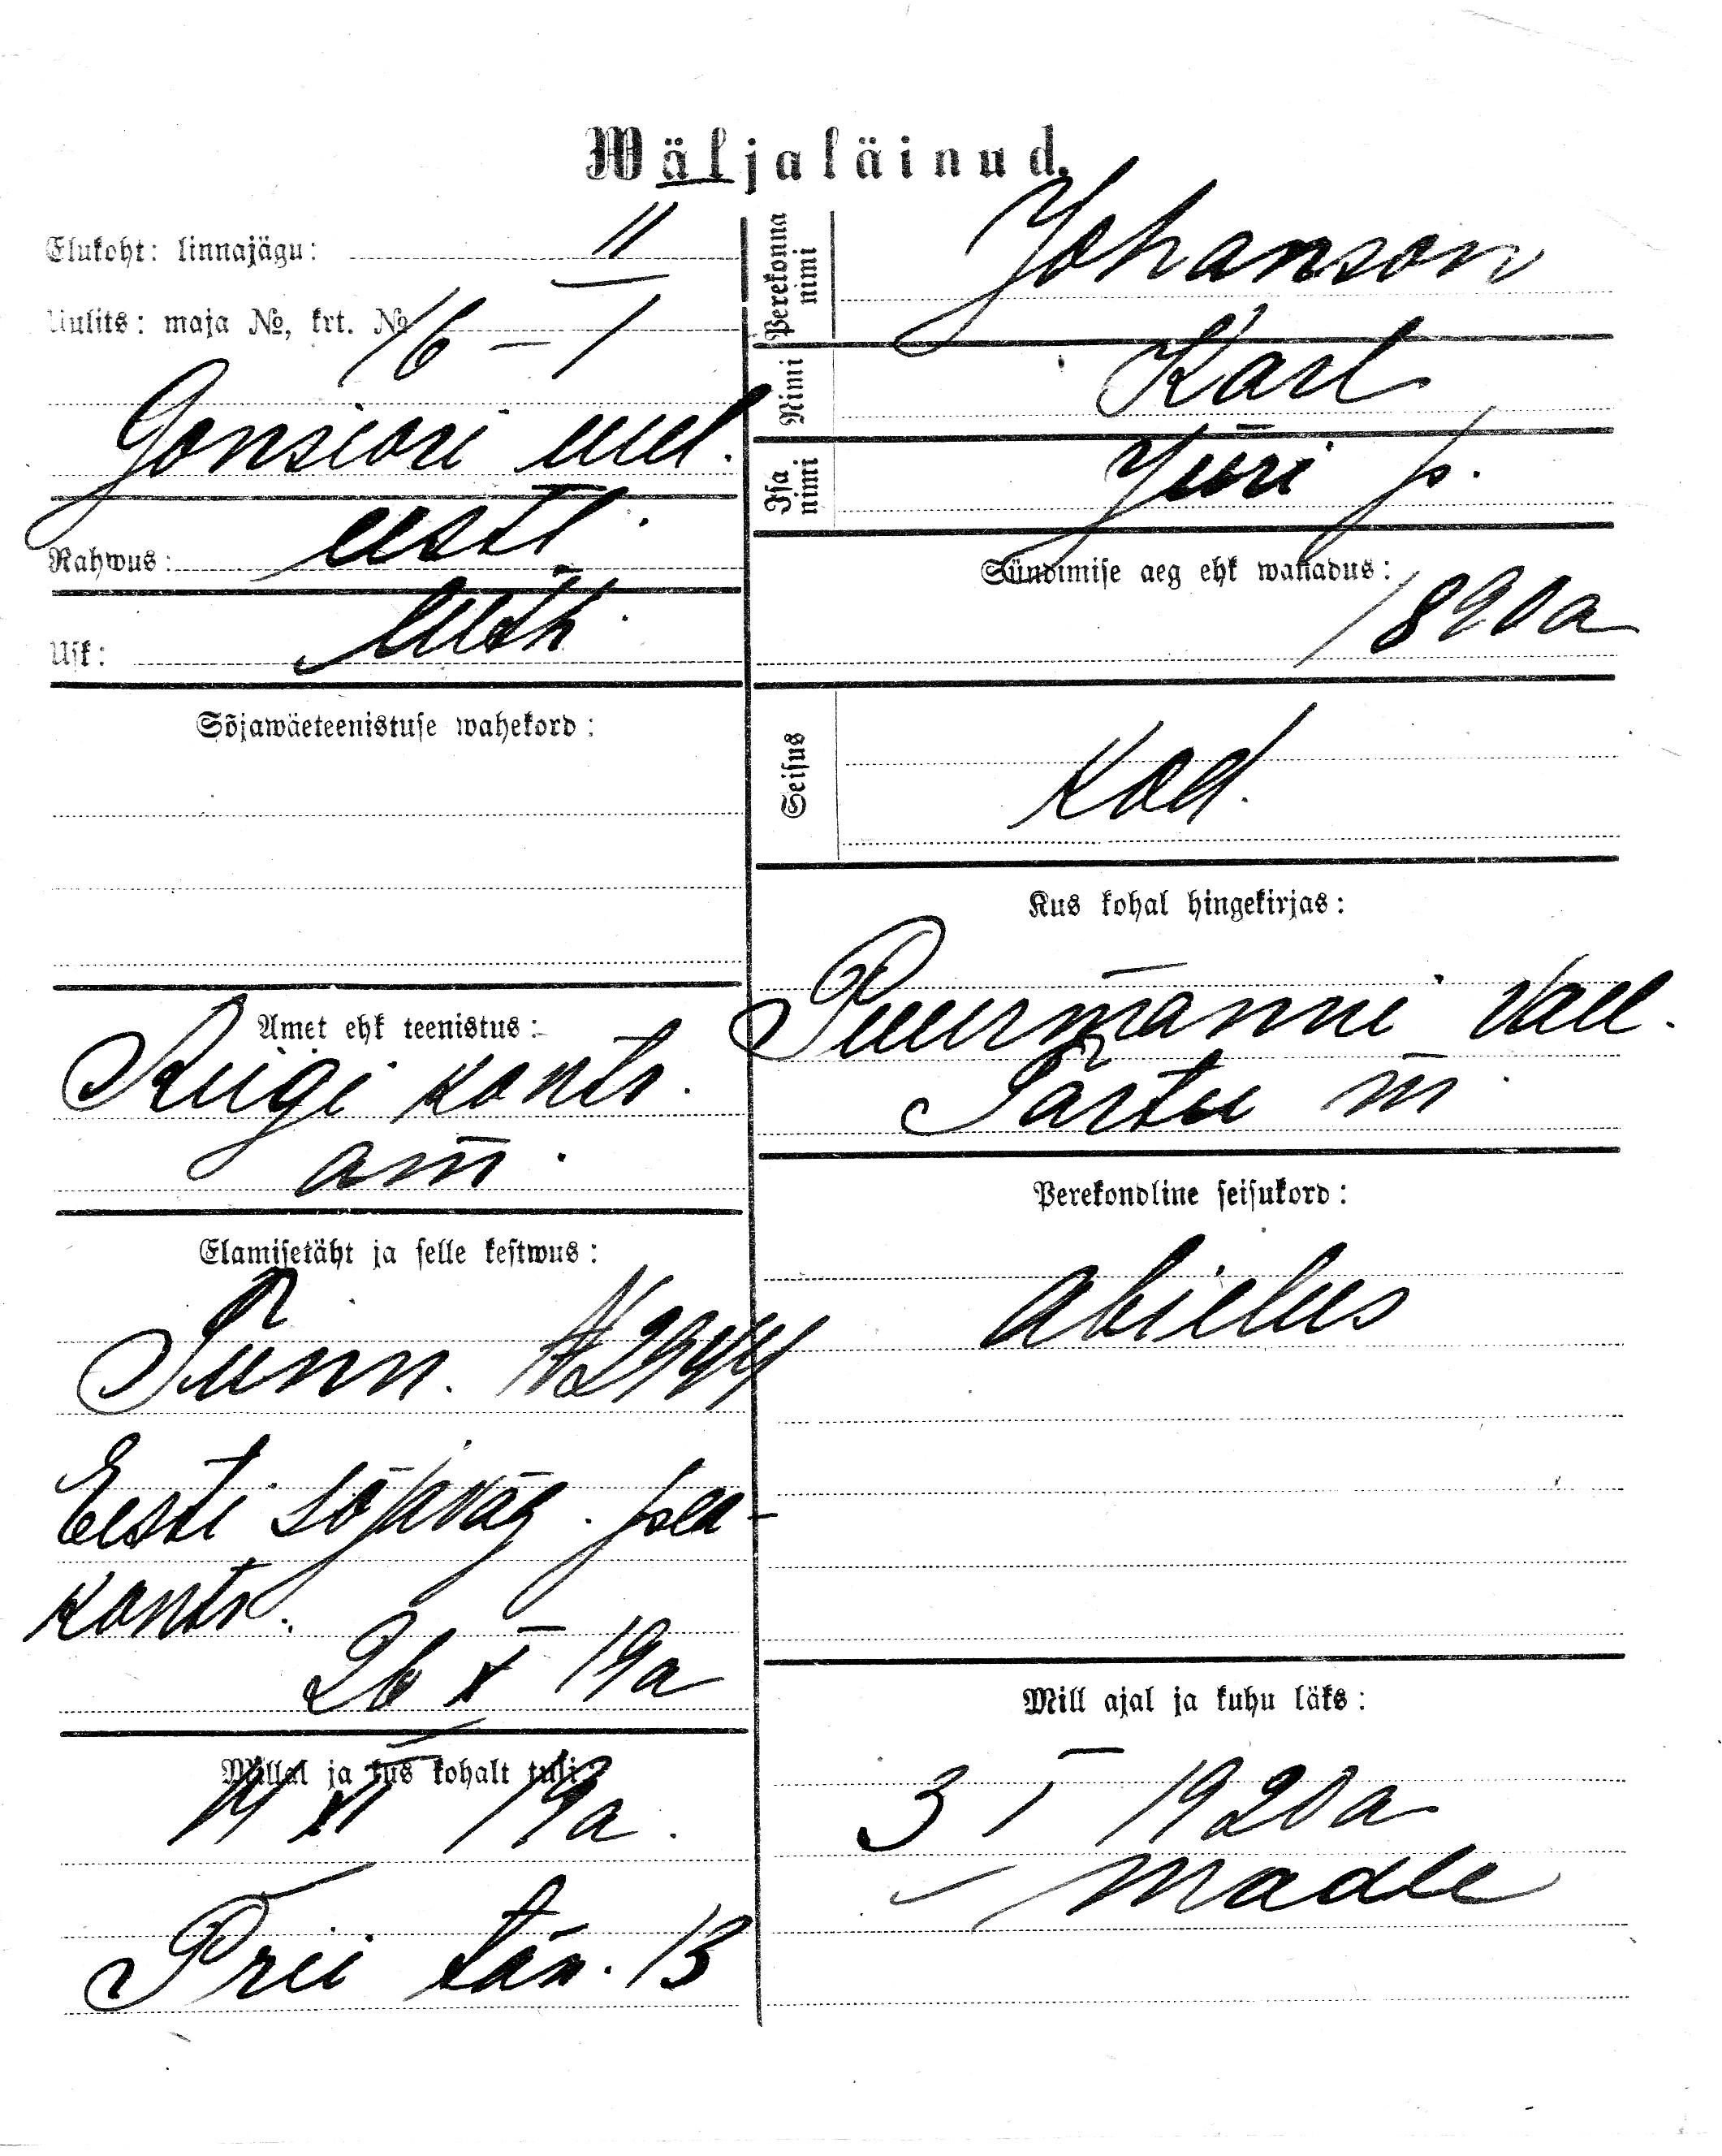 Wäljaläinud.
Elukoht: linnajägu: II
Uulits: maja №, krt. № 16 – 1
Gonsiori uul.
Rahwus: eesti
Usk: luth.
Sõjawäeteenistuse wahekord:
Amet ehk teenistus:
Riigi kontr.
am.
Elamisetäht ja selle kestwus:
Tunn. №
Eesti sõjaväe pea-
kontr.
26 X 19a
Millal ja kus kohalt tuli:
14 XI 19a.
Prii tän. 13
Perekonna nimi
Johanson
Nimi
Karl
Isa nimi
Jüri p.
Sündimise aeg ehk wanadus:
1890a
Seisus
kod.
Kus kohal hingekirjas:
Puurmanni vall.
Tartu m
Perekondline seisukord:
abielus
Mill ajal ja kuhu läks:
3 I 1920a
maale